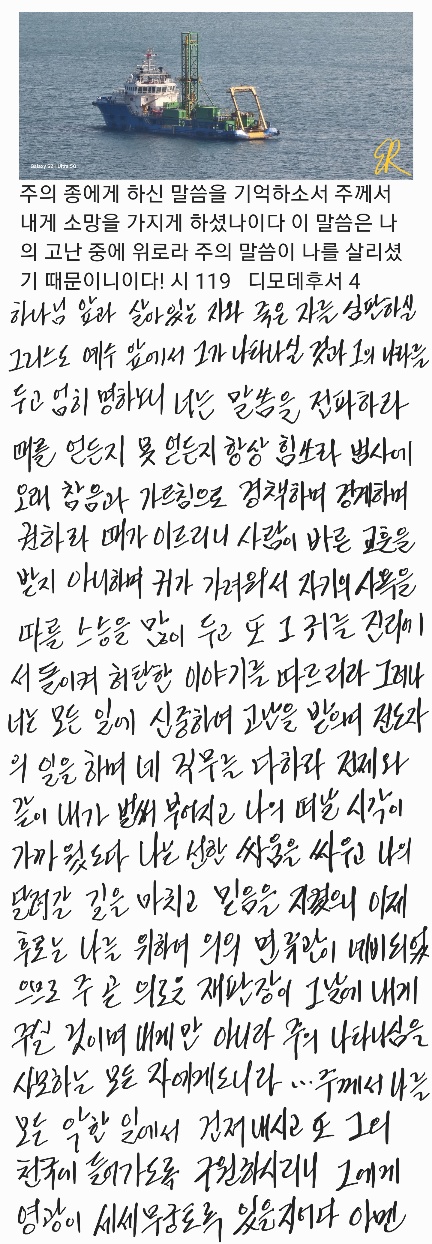 Galaxy S24 Ultra 5G
ER
주의 종에게 하신 말씀을 기억하소서 주께서
내게 소망을 가지게 하셨나이다 이 말씀은 나
의 고난 중에 위로라 주의 말씀이 나를 살리셨
기 때문이니이다! 시 119 디모데후서 4
하나님 앞과 살아있는 자와 죽은 자를 심판하실
그리스도 예수 앞에서 그가 나타나실 것과 그의 나라를
두고 엄히 명하노니 너는 말씀을 전파하라
때를 얻든지 못 얻든지 항상 힘쓰라 범사에
오래 참음과 가르침으로 경책하며 경계하며
권하라 때가 이르리니 사람이 바른 교훈을
받지 아니하며 귀가 가려워서 자기의 사욕을
따를 스승을 많이 두고 또 그 귀를 진리에
서 돌이켜 허탄한 이야기를 따르리라 그러나
너는 모든 일에 신중하여 고난을 받으며 전도자
의 일을 하며 네 직무를 다하라 전제와
같이 내가 벌써 부어지고 나의 떠날 시각이
가까웠도다 나는 선한 싸움을 싸우고 나의
달려갈 길을 마치고 믿음을 지켰으니 이제
후로는 나를 위하여 의의 면류관이 예비되었
으므로 주 곧 의로운 재판장이 그날에 내게
주실 것이며 내게만 아니라 주의 나타나심을
사모하는 모든 자에게도니라 ...주께서 나를
모든 악한 일에서 건져내시고 또 그의
천국에 들어가도록 구원하시리니 그에게
영광이 세세무궁토록 있을지어다 아멘